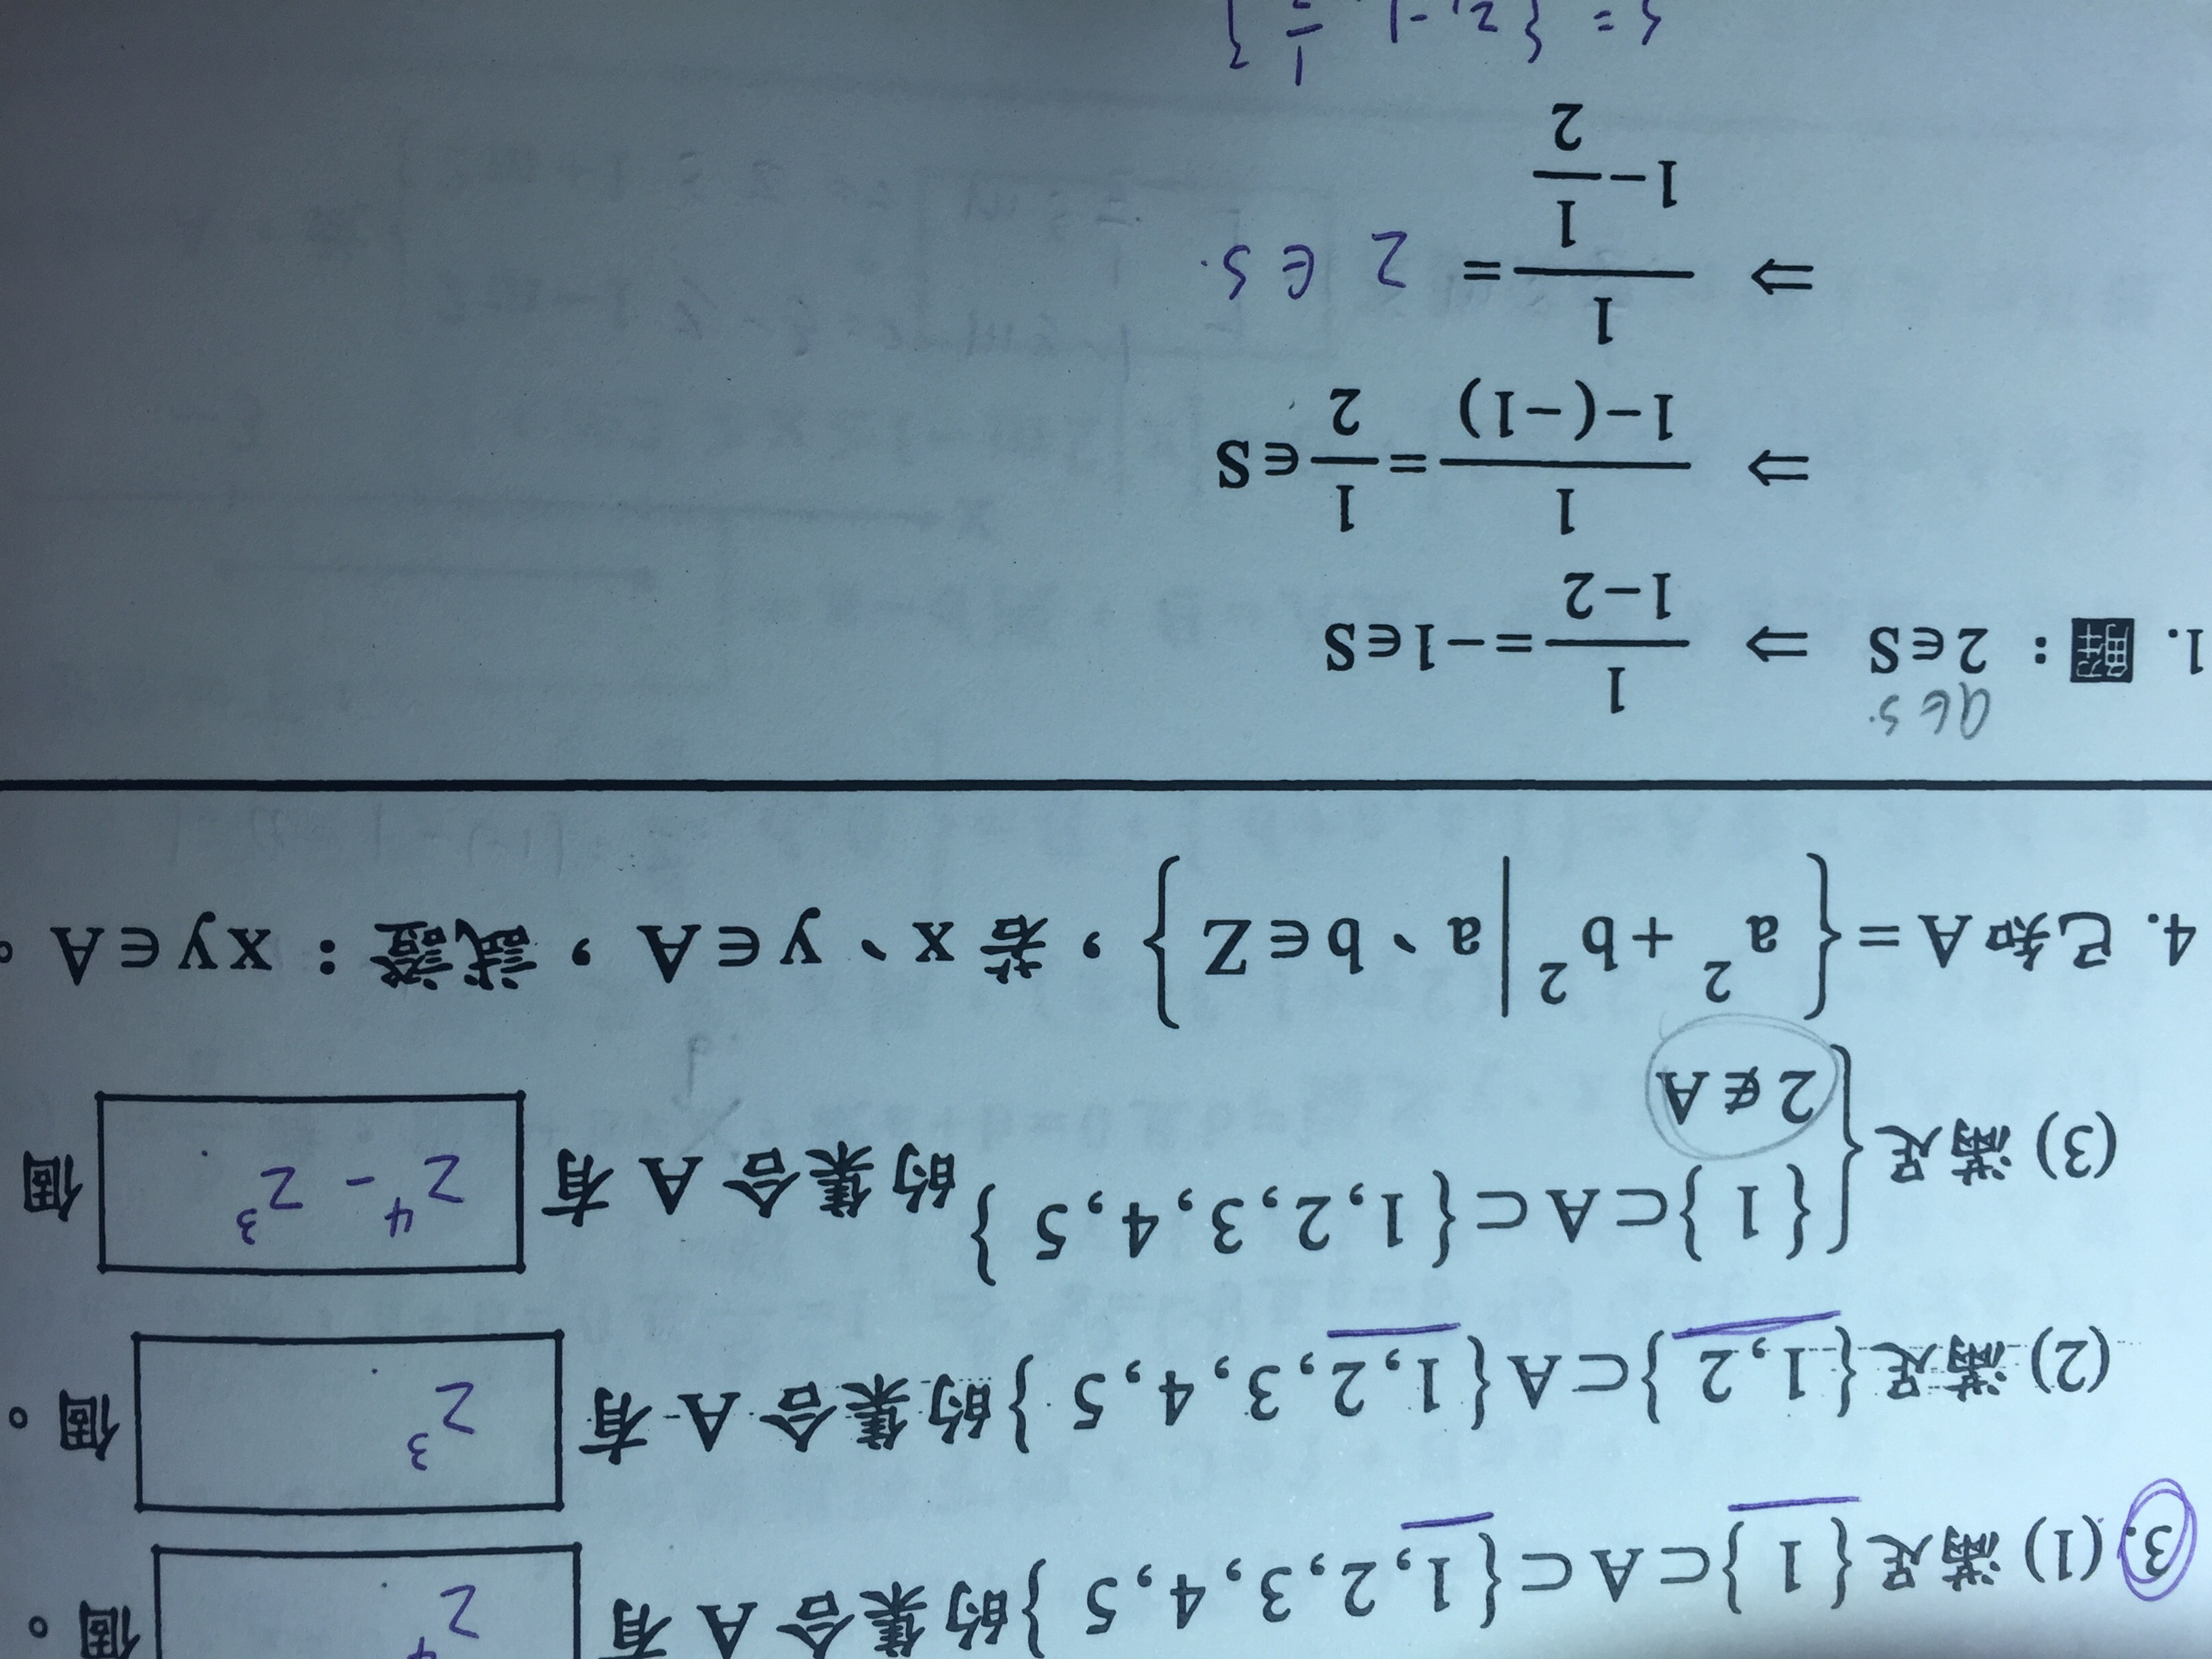 3. (1) 滿足{ 1 }⊂A⊂{ 1, 2, 3, 4, 5 }的集合A有 2⁴ 個。
(2) 滿足{ 1, 2 }⊂A{ 1, 2, 3, 4, 5 }的集合A有 2³ 個。
(3) 滿足{ { 1 }⊂A⊂{ 1, 2, 3, 4, 5 } 的集合A有 2⁴ - 2³ 個
2∉A
4. 已知A={ a²+b² | a、b∈Z },若x、y∈A,試證:xy∈A。
a∈S.
1. 解:2∈S ⇒ 1/(1-2)=-1∈S
⇒ 1/(1-(-1))=1/2∈S
⇒ 1/(1-1/2)= 2 ∈ S.
S = { 2, -1, 1/2 }